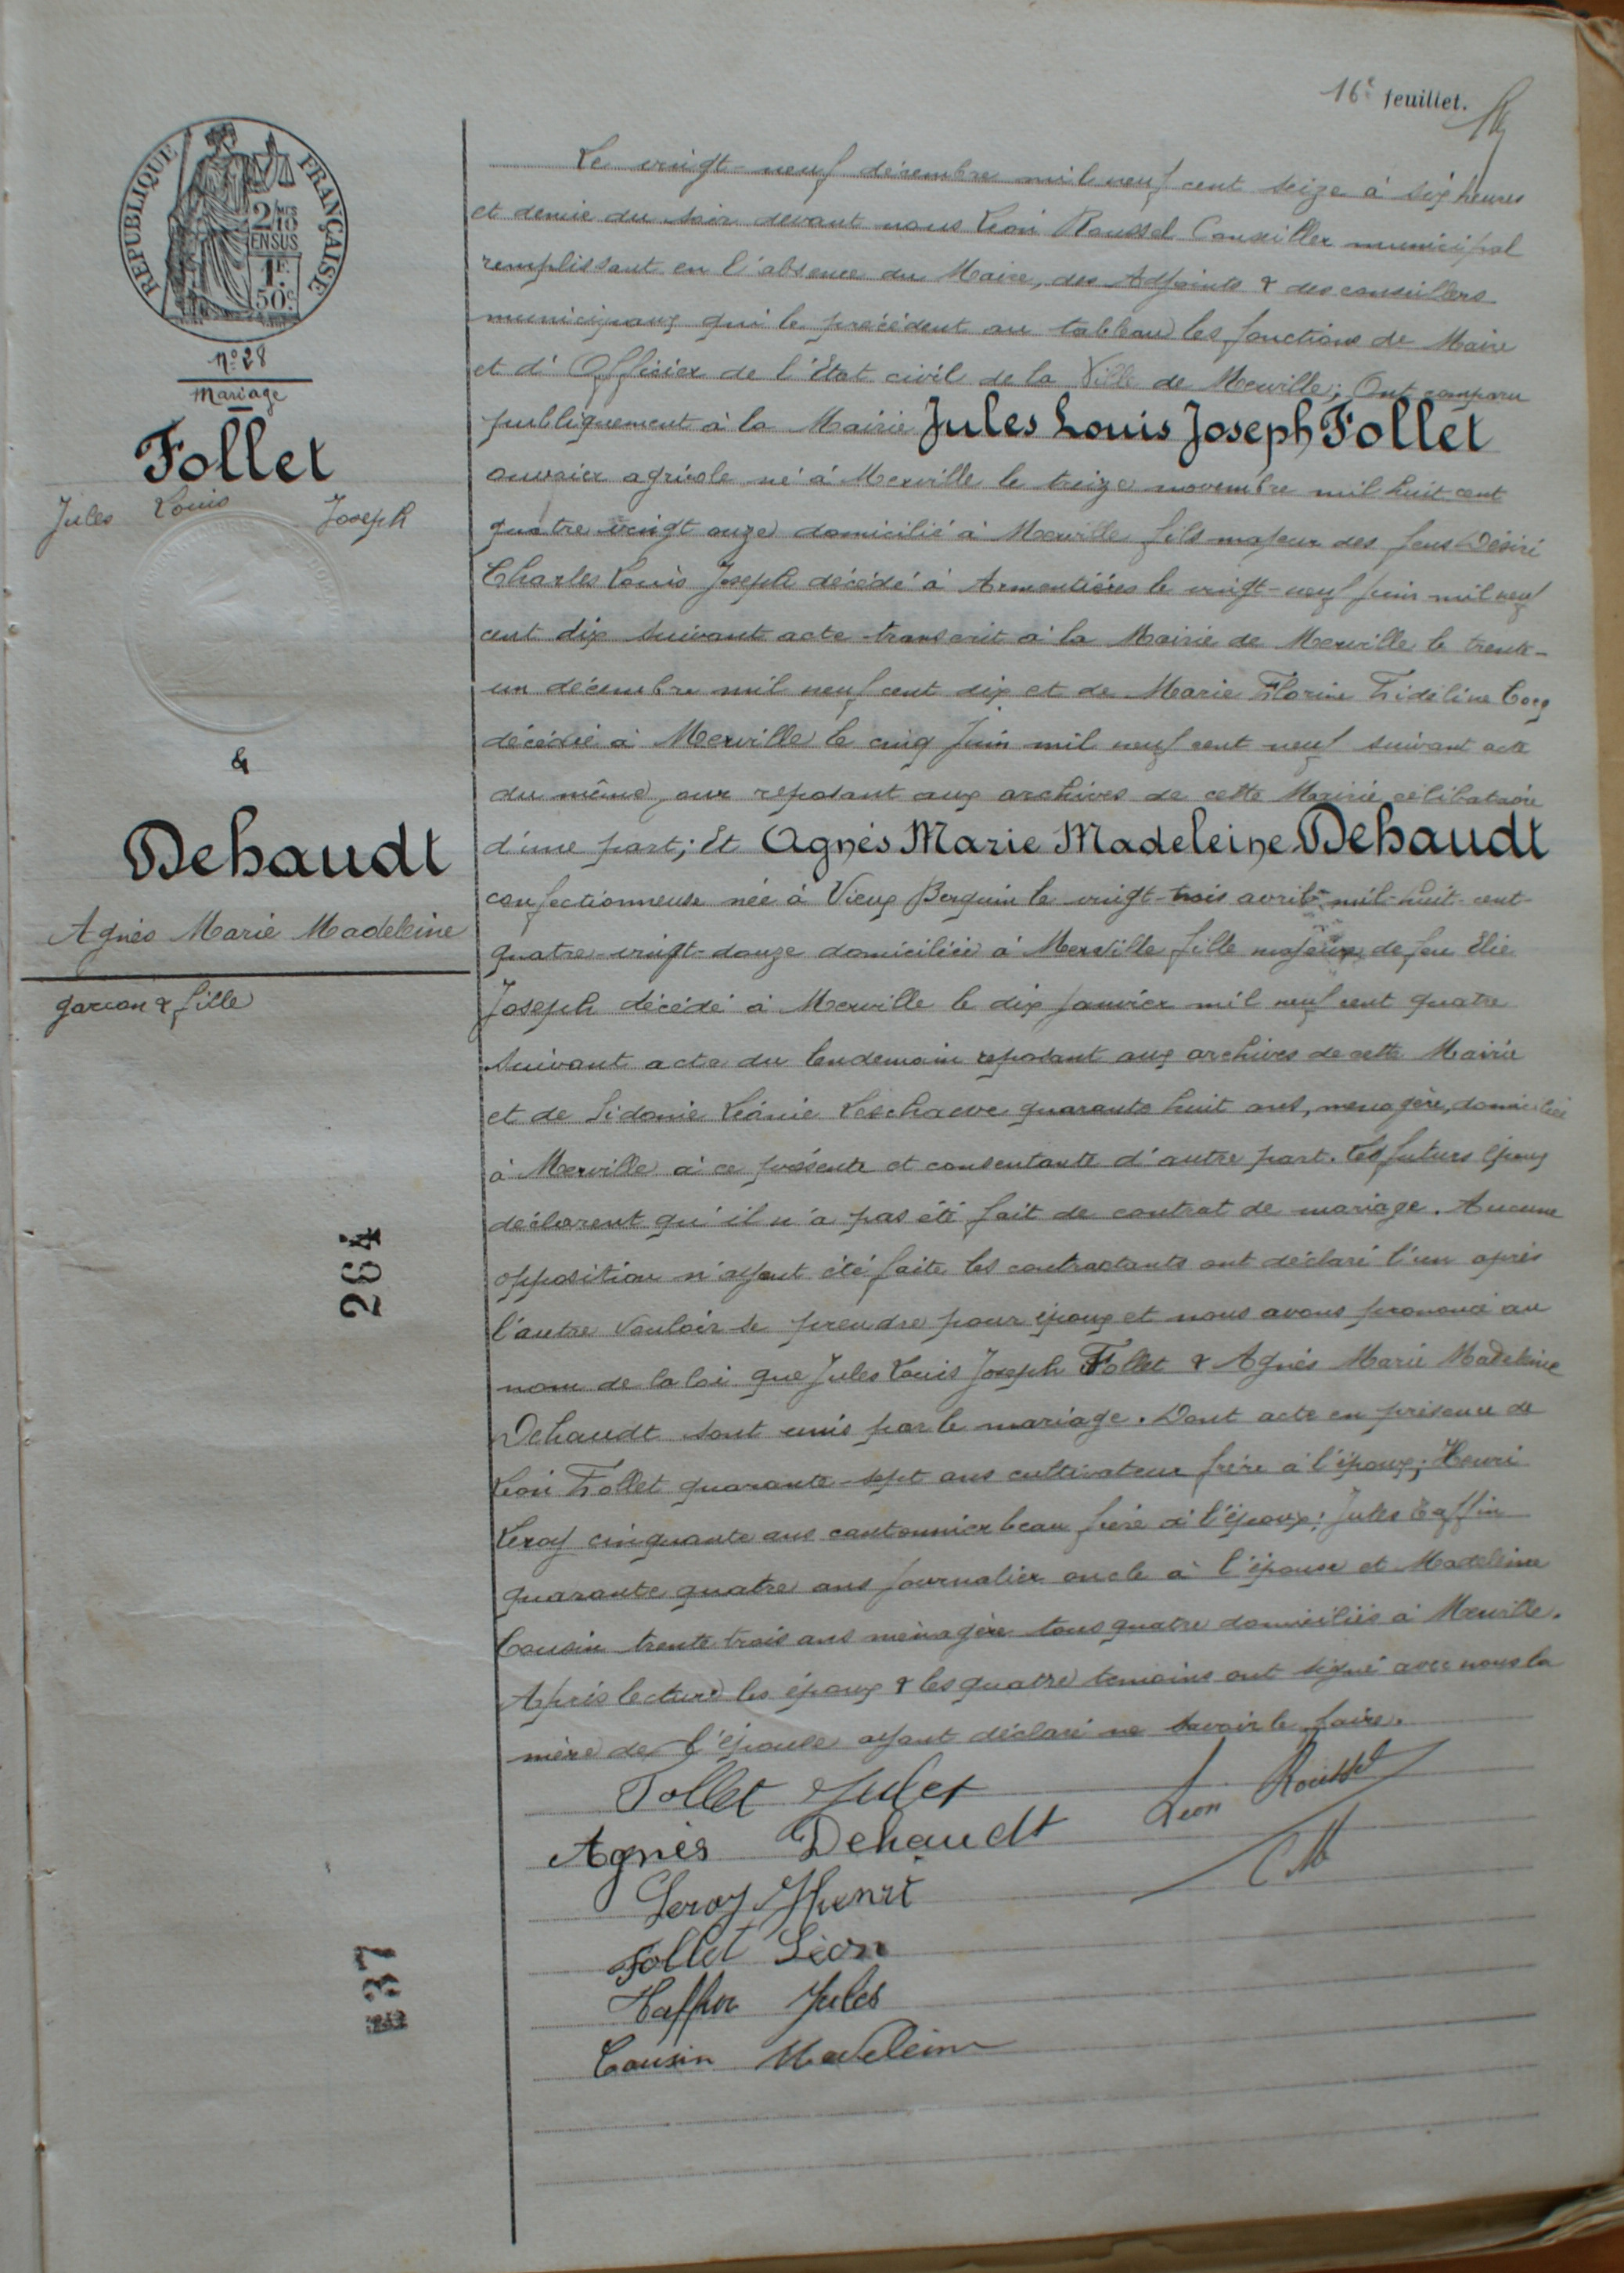 16e feuillet.
RÉPUBLIQUE FRANÇAISE
2/10 MES
EN SUS
1F.
50c.
No 28
Mariage
Follet
Jules Louis Joseph
&
Dehaudt
Agnès Marie Madeleine
garçon & fille
264
37
Le vingt-neuf décembre mil neuf cent seize à six heures
et demie du soir devant nous Léon Roussel Conseiller municipal
remplissant en l'absence du Maire, des Adjoints & des conseillers
municipaux qui le précèdent au tableau les fonctions de Maire
et d'Officier de l'Etat civil de la Ville de Merville; Ont comparu
publiquement à la Mairie Jules Louis Joseph Follet
ouvrier agricole né à Merville le treize novembre mil huit cent
quatre vingt onze domicilié à Merville fils majeur des feus Désiré
Charles Louis Joseph décédé à Armentières le vingt-neuf juin mil neuf
cent dix suivant acte transcrit à la Mairie de Merville le trente-
un décembre mil neuf cent dix et de Marie Florine Fidéline Cocq
décédée à Merville le cinq Juin mil neuf cent neuf suivant acte
du même jour reposant aux archives de cette Mairie célibataire
d'une part; Et Agnès Marie Madeleine Dehaudt
confectionneuse née à Vieux Berquin le vingt-trois avril mil-huit-cent-
quatre-vingt-douze domiciliée à Merville fille majeure de feu Elie
Joseph décédé à Merville le dix janvier mil neuf cent quatre
suivant acte du lendemain reposant aux archives de cette Mairie
et de Sidonie Léonie quarante huit ans, ménagère, domiciliée
à Merville à ce présente et consentante d'autre part. Les futurs époux
déclarent qu'il n'a pas été fait de contrat de mariage. Aucune
opposition n'ayant été faite les contractants ont déclaré l'un après
l'autre vouloir se prendre pour époux et nous avons prononcé au
nom de la loi que Jules Louis Joseph Follet & Agnès Marie Madeleine
Dehaudt sont unis par le mariage. Dont acte en présence de
Léon Follet quarante-sept ans cultivateur frère à l'époux; Henri
Leroy cinquante ans cantonnier beau frère à l'époux; Jules Taffin
quarante quatre ans journalier oncle à l'épouse et Madeleine
Cousin trente trois ans ménagère tous quatre domiciliés à Merville.
Après lecture les époux & les quatre témoins ont signé avec nous la
mère de l'épouse ayant déclaré ne savoir le faire.
Follet Jules
Léon Roussel
Agnès Dehaudt
CM
Leroy Henri
Follet Léon
Taffin Jules
Cousin Madeleine